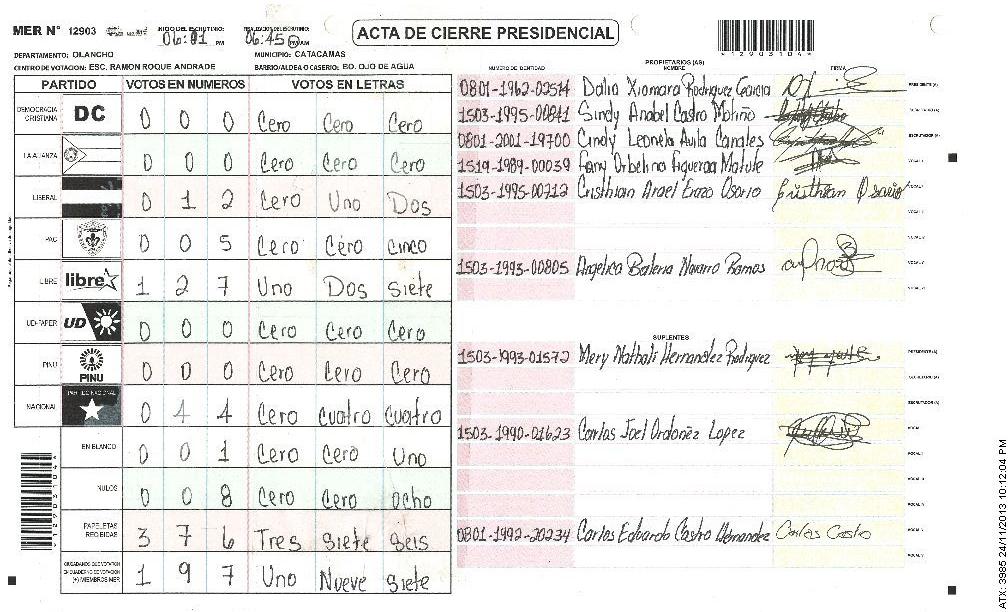 MER N° 12903 INICIO DEL ESCRUTINIO: 06:01 PM FINALIZACION ESCRUTINIO: 06:45 PM AM
ACTA DE CIERRE PRESIDENCIAL
*12903104*
DEPARTAMENTO: OLANCHO MUNICIPIO: CATACAMAS
CENTRO DE VOTACION: ESC. RAMON ROQUE ANDRADE BARRIO/ALDEA O CASERIO: BO. OJO DE AGUA
PARTIDO VOTOS EN NUMEROS VOTOS EN LETRAS
DEMOCRACIA CRISTIANA DC 0 0 0 Cero Cero Cero
LA ALIANZA 0 0 0 Cero Cero Cero
LIBERAL 0 1 2 Cero Uno Dos
PAC 0 0 5 Cero Cero Cinco
LIBRE libre 1 2 7 Uno Dos Siete
UD-FAPER UD 0 0 0 Cero Cero Cero
PINU PINU 0 0 0 Cero Cero Cero
NACIONAL PARTIDO NACIONAL 0 4 4 Cero Cuatro Cuatro
EN BLANCO 0 0 1 Cero Cero Uno
NULOS 0 0 8 Cero Cero Ocho
PAPELETAS RECIBIDAS 3 7 6 Tres Siete Seis
CIUDADANOS QUE VOTARON EN CUADERNO DE VOTACION (+) MIEMBROS MER 1 9 7 Uno Nueve Siete
*12903104*
PROPIETARIOS (AS)
NUMERO DE IDENTIDAD NOMBRE FIRMA
0801-1962-02514 Dalia Xiomara Rodriguez Garcia PRESIDENTE (A)
1503-1995-00841 Sindy Anabel Castro Moliño SECRETARIO (A)
0801-2001-19700 Cindy Leonela Avila Canales ESCRUTADOR (A)
1519-1989-00039 Fany Orbelina Figueroa Matute VOCAL I
1503-1995-00712 Cristhian Anael Erazo Osorio Cristhian Osorio VOCAL
1503-1993-00805 Angelica Baleria Navarro Ramos
SUPLENTES
1503-1993-01572 Mery Nathali Hernandez Rodriguez PRESIDENTE (A)
SECRETARIO (A)
ESCRUTADOR (A)
1503-1990-01623 Carlos Joel Ordoñez Lopez VOCAL
0801-1992-20234 Carlos Eduardo Castro Hernandez Carlos Castro
ATX: 3985 24/11/2013 10:12:04 PM